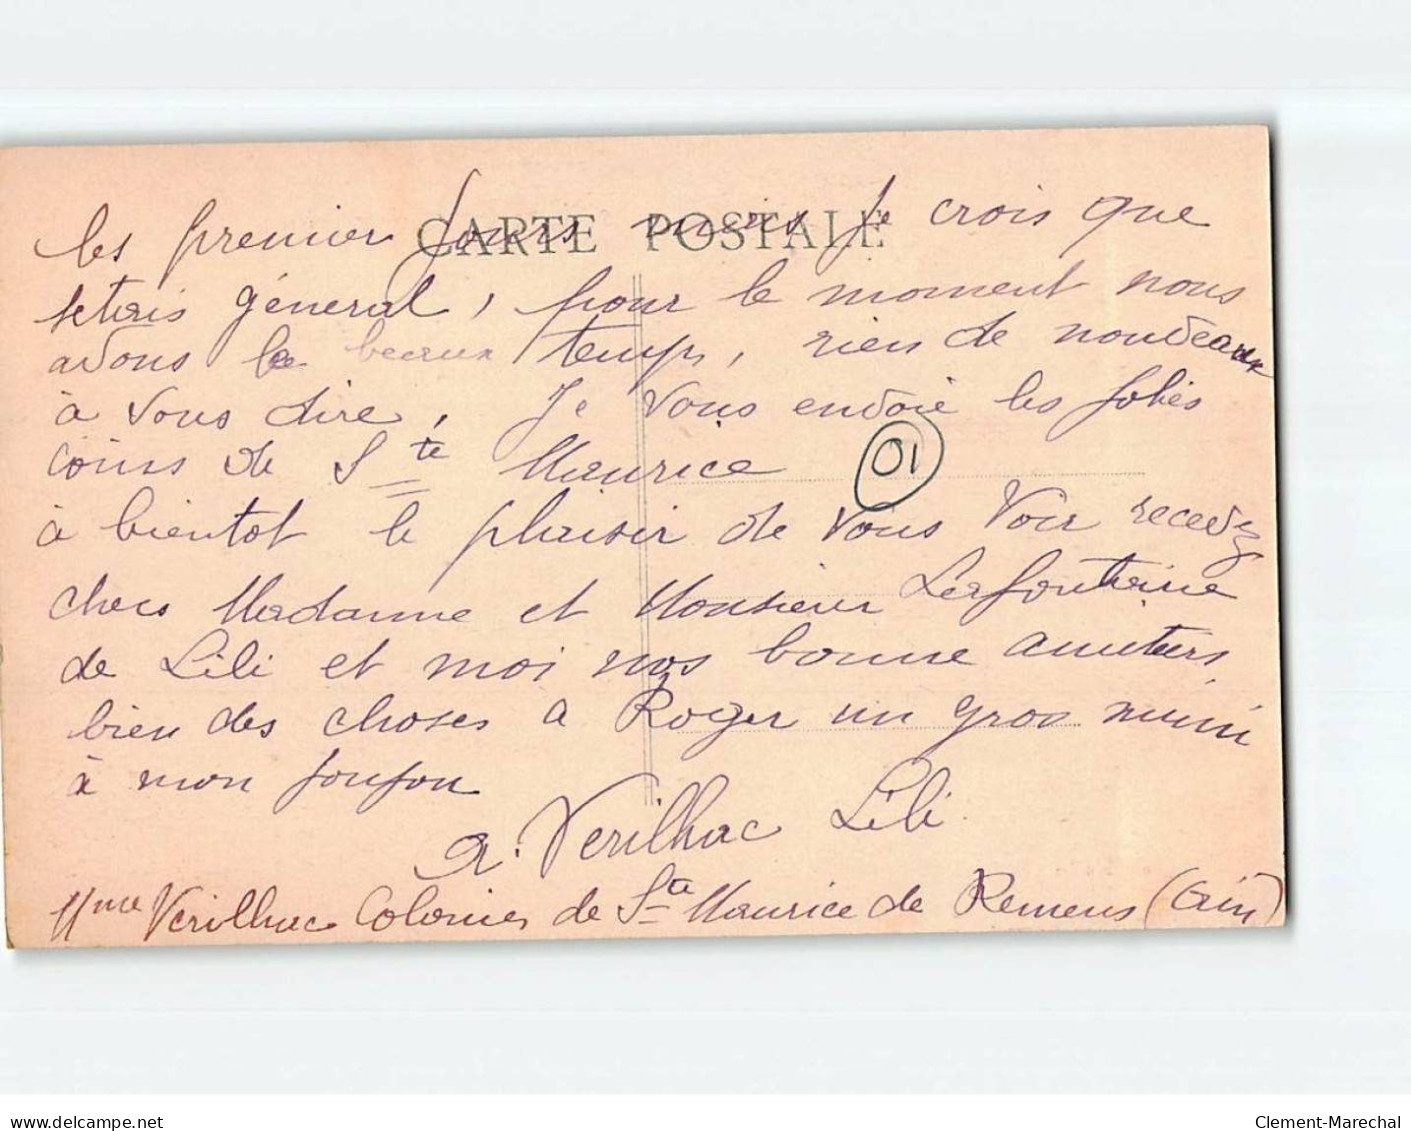 CARTE POSTALE
les premier jours mais je crois que
setais géneral, pour le moment nous
avons le beaux temps, rien de nouveaux
à vous dire, Je vous envoie les jolies
coins de Ste Maurice
01
à bientot le plaisir de vous voir recevez
chers Madame et Monsieur Lafontaine
de Lili et moi nos bonne amitiers
bien des choses a Roger un gros mimi
à mon foufou
A. Verilhac Lili
Mme Verilhac Colonies de Ste Maurice de Remens (Ain)
www.delcampe.net
Clement-Marechal